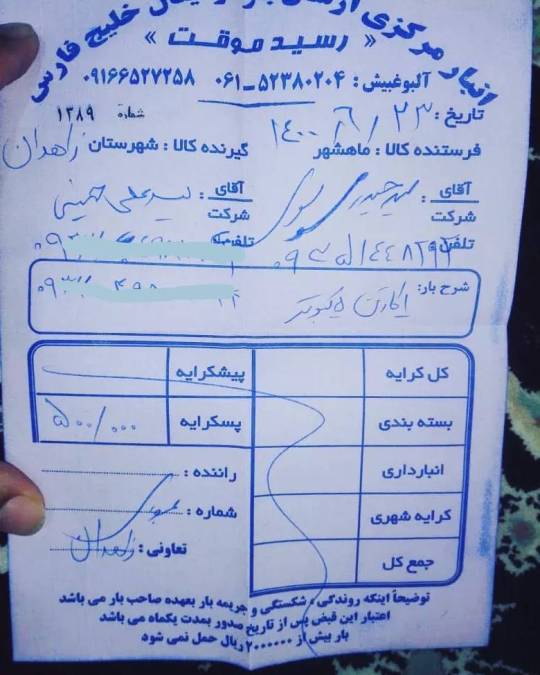 انبار مرکزی ارسال بار ترمینال خلیج فارس
« رسید موقت »
آلبوغبیش : ۵۲۳۸۰۲۰۴-۰۶۱ ۰۹۱۶۶۵۲۷۲۵۸
تاریخ : ۱۴۰۰/۶/۲۳ شماره ۱۳۸۹
فرستنده کالا : ماهشهر گیرنده کالا : شهرستان زاهدان
آقای : آقای : سید علی حسینی
شرکت شرکت
تلفن تلفن
شرح بار : ۱ کارتن کبوتر
کل کرایه پیشکرایه
بسته بندی پسکرایه ۵۰۰/۰۰۰
انبارداری راننده :
کرایه شهری شماره :
جمع کل تعاونی : زاهدان
توضیحاً اینکه روندگی ، شکستگی و جریمه بار بعهده صاحب بار می باشد
اعتبار این قبض پس از تاریخ صدور بمدت یکماه می باشد
بار بیش از ۲۰۰۰۰۰۰ ریال حمل نمی شود